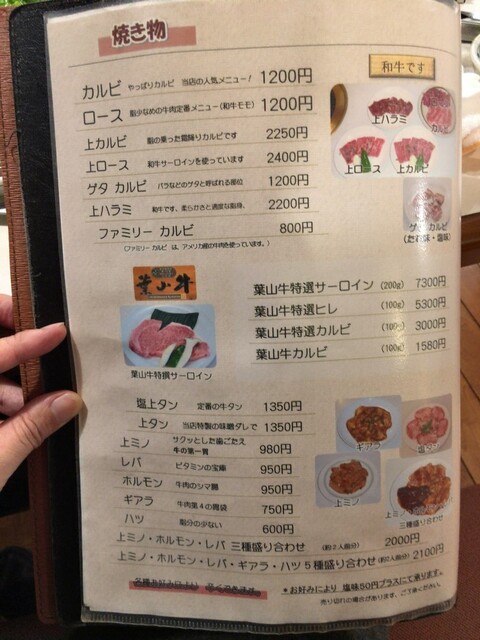 焼き物
和牛です
カルビ やっぱりカルビ 当店の人気メニュー! 1200円
ロース 脂少なめの牛肉定番メニュー(和牛モモ) 1200円
上カルビ 脂の乗った霜降りカルビです 2250円
上ロース 和牛サーロインを使っています 2400円
ゲタ カルビ バラなどのゲタと呼ばれる部位 1200円
上ハラミ 和牛です、柔らかさと適度な脂身、 2200円
ファミリー カルビ 800円
(ファミリー カルビ は、アメリカ産の牛肉を使っています。)
上ハラミ
カルビ
上ロース
上カルビ
ゲタカルビ
(たれ味・塩味)
葉山牛
葉山牛特撰サーロイン
葉山牛特選サーロイン (200g) 7300円
葉山牛特選ヒレ (100g) 5300円
葉山牛特選カルビ (100g) 3000円
葉山牛カルビ (100g) 1580円
塩上タン 定番の牛タン 1350円
上タン 当店特製の味噌ダレで 1350円
上ミノ サクッとした歯ごたえ 牛の第一胃 980円
レバ ビタミンの宝庫 950円
ホルモン 牛肉のシマ腸 950円
ギアラ 牛肉第4の胃袋 750円
ハツ 脂分の少ない 600円
上ミノ・ホルモン・レバ 三種盛り合わせ (約2人前分) 2000円
上ミノ・ホルモン・レバ・ギアラ・ハツ5種盛り合わせ (約2人前分) 2100円
ギアラ
塩タン
上ミノ
三種盛り合わせ
*お好みにより 塩味50円プラスにて承ります。
売り切れの場合があります、ご了承ください。